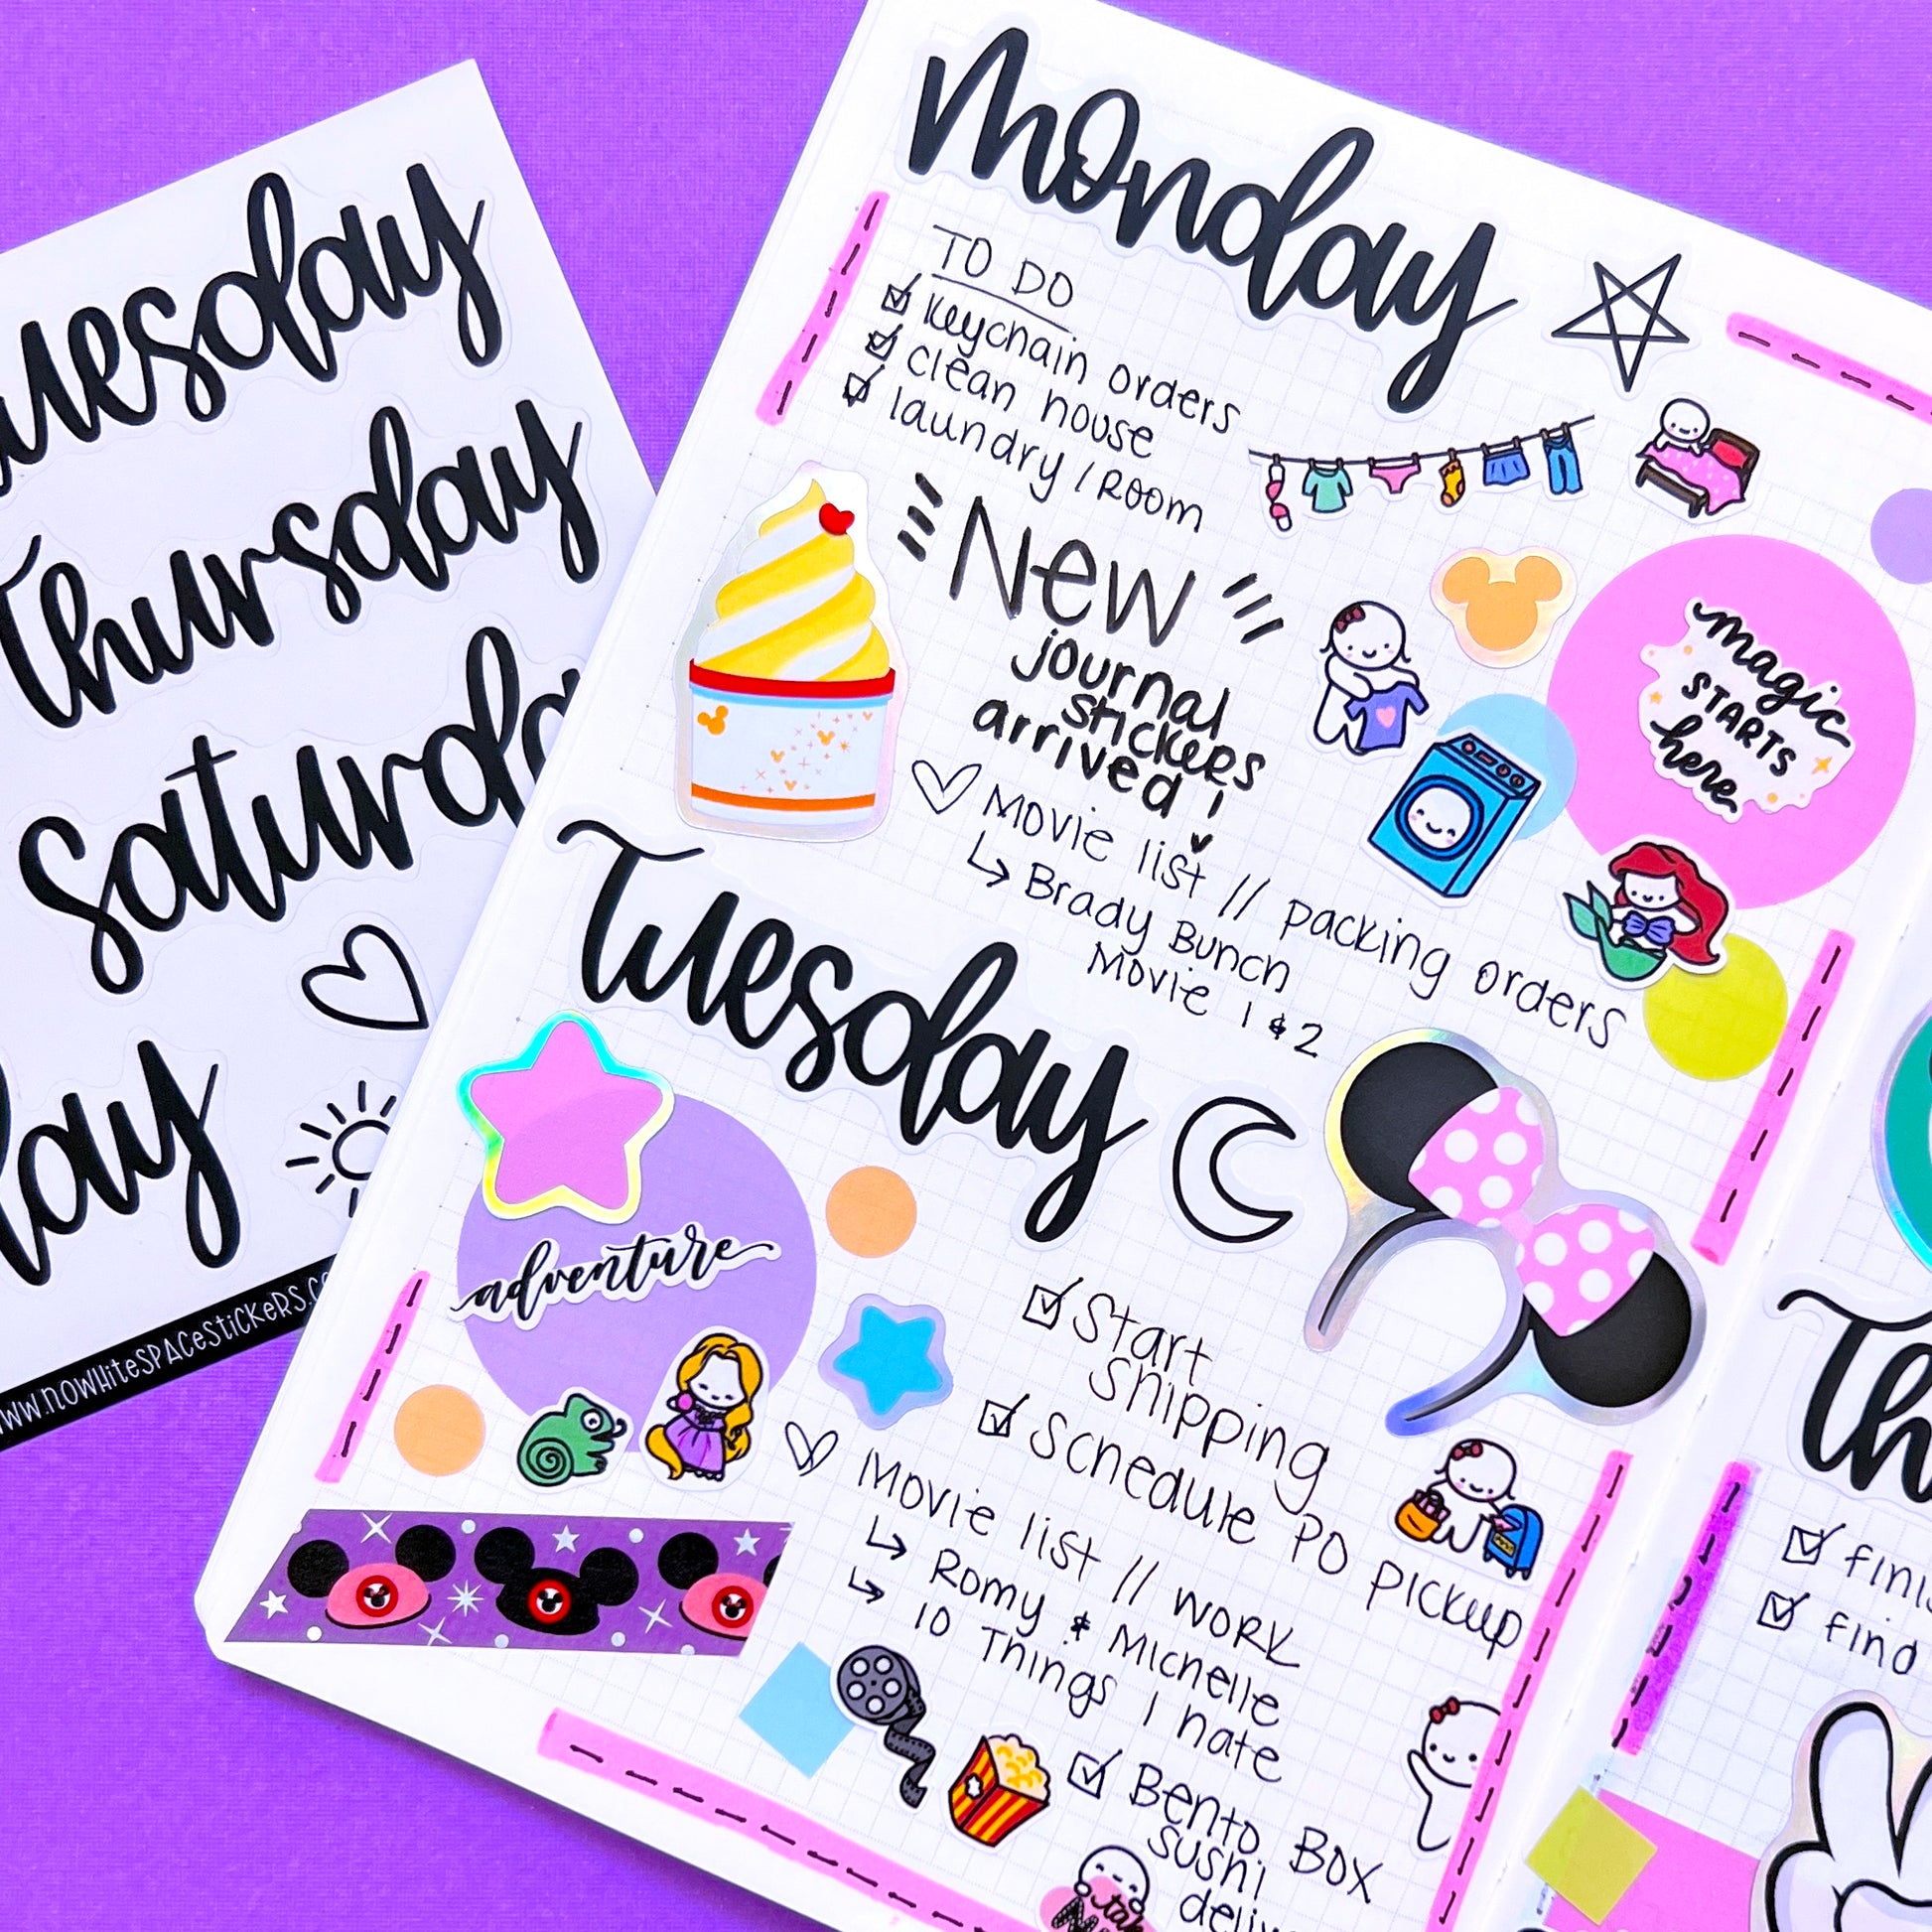 uesday
Thursday
saturda
day
WWW.NOWHITESPACESTICKERS.C
Monday
TO DO
keychain orders
clean house
laundry / Room
New
journal
stickers
arrived!
magic
STARTS
here
Movie list // packing orders
Brady Bunch
Movie 1 & 2
Tuesday
adventure
Start
shipping
Schedule PO pickup
Movie list // work
Romy & Michelle
10 Things I hate
Bento Box
sushi
deliv
Th
finis
find